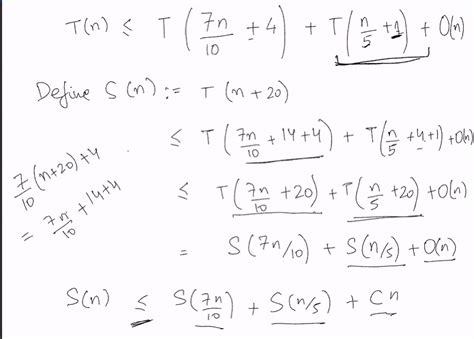 T(n) ≤ T(7n/10 + 4) + T(n/5 + 1) + O(n)
Define S(n) := T(n+20)
≤ T(7n/10 + 14+4) + T(n/5 + 4+1) + O(n)
7/10 (n+20) + 4
= 7n/10 + 14+4
≤ T(7n/10 + 20) + T(n/5 + 20) + O(n)
= S(7n/10) + S(n/5) + O(n)
S(n) ≤ S(7n/10) + S(n/5) + Cn